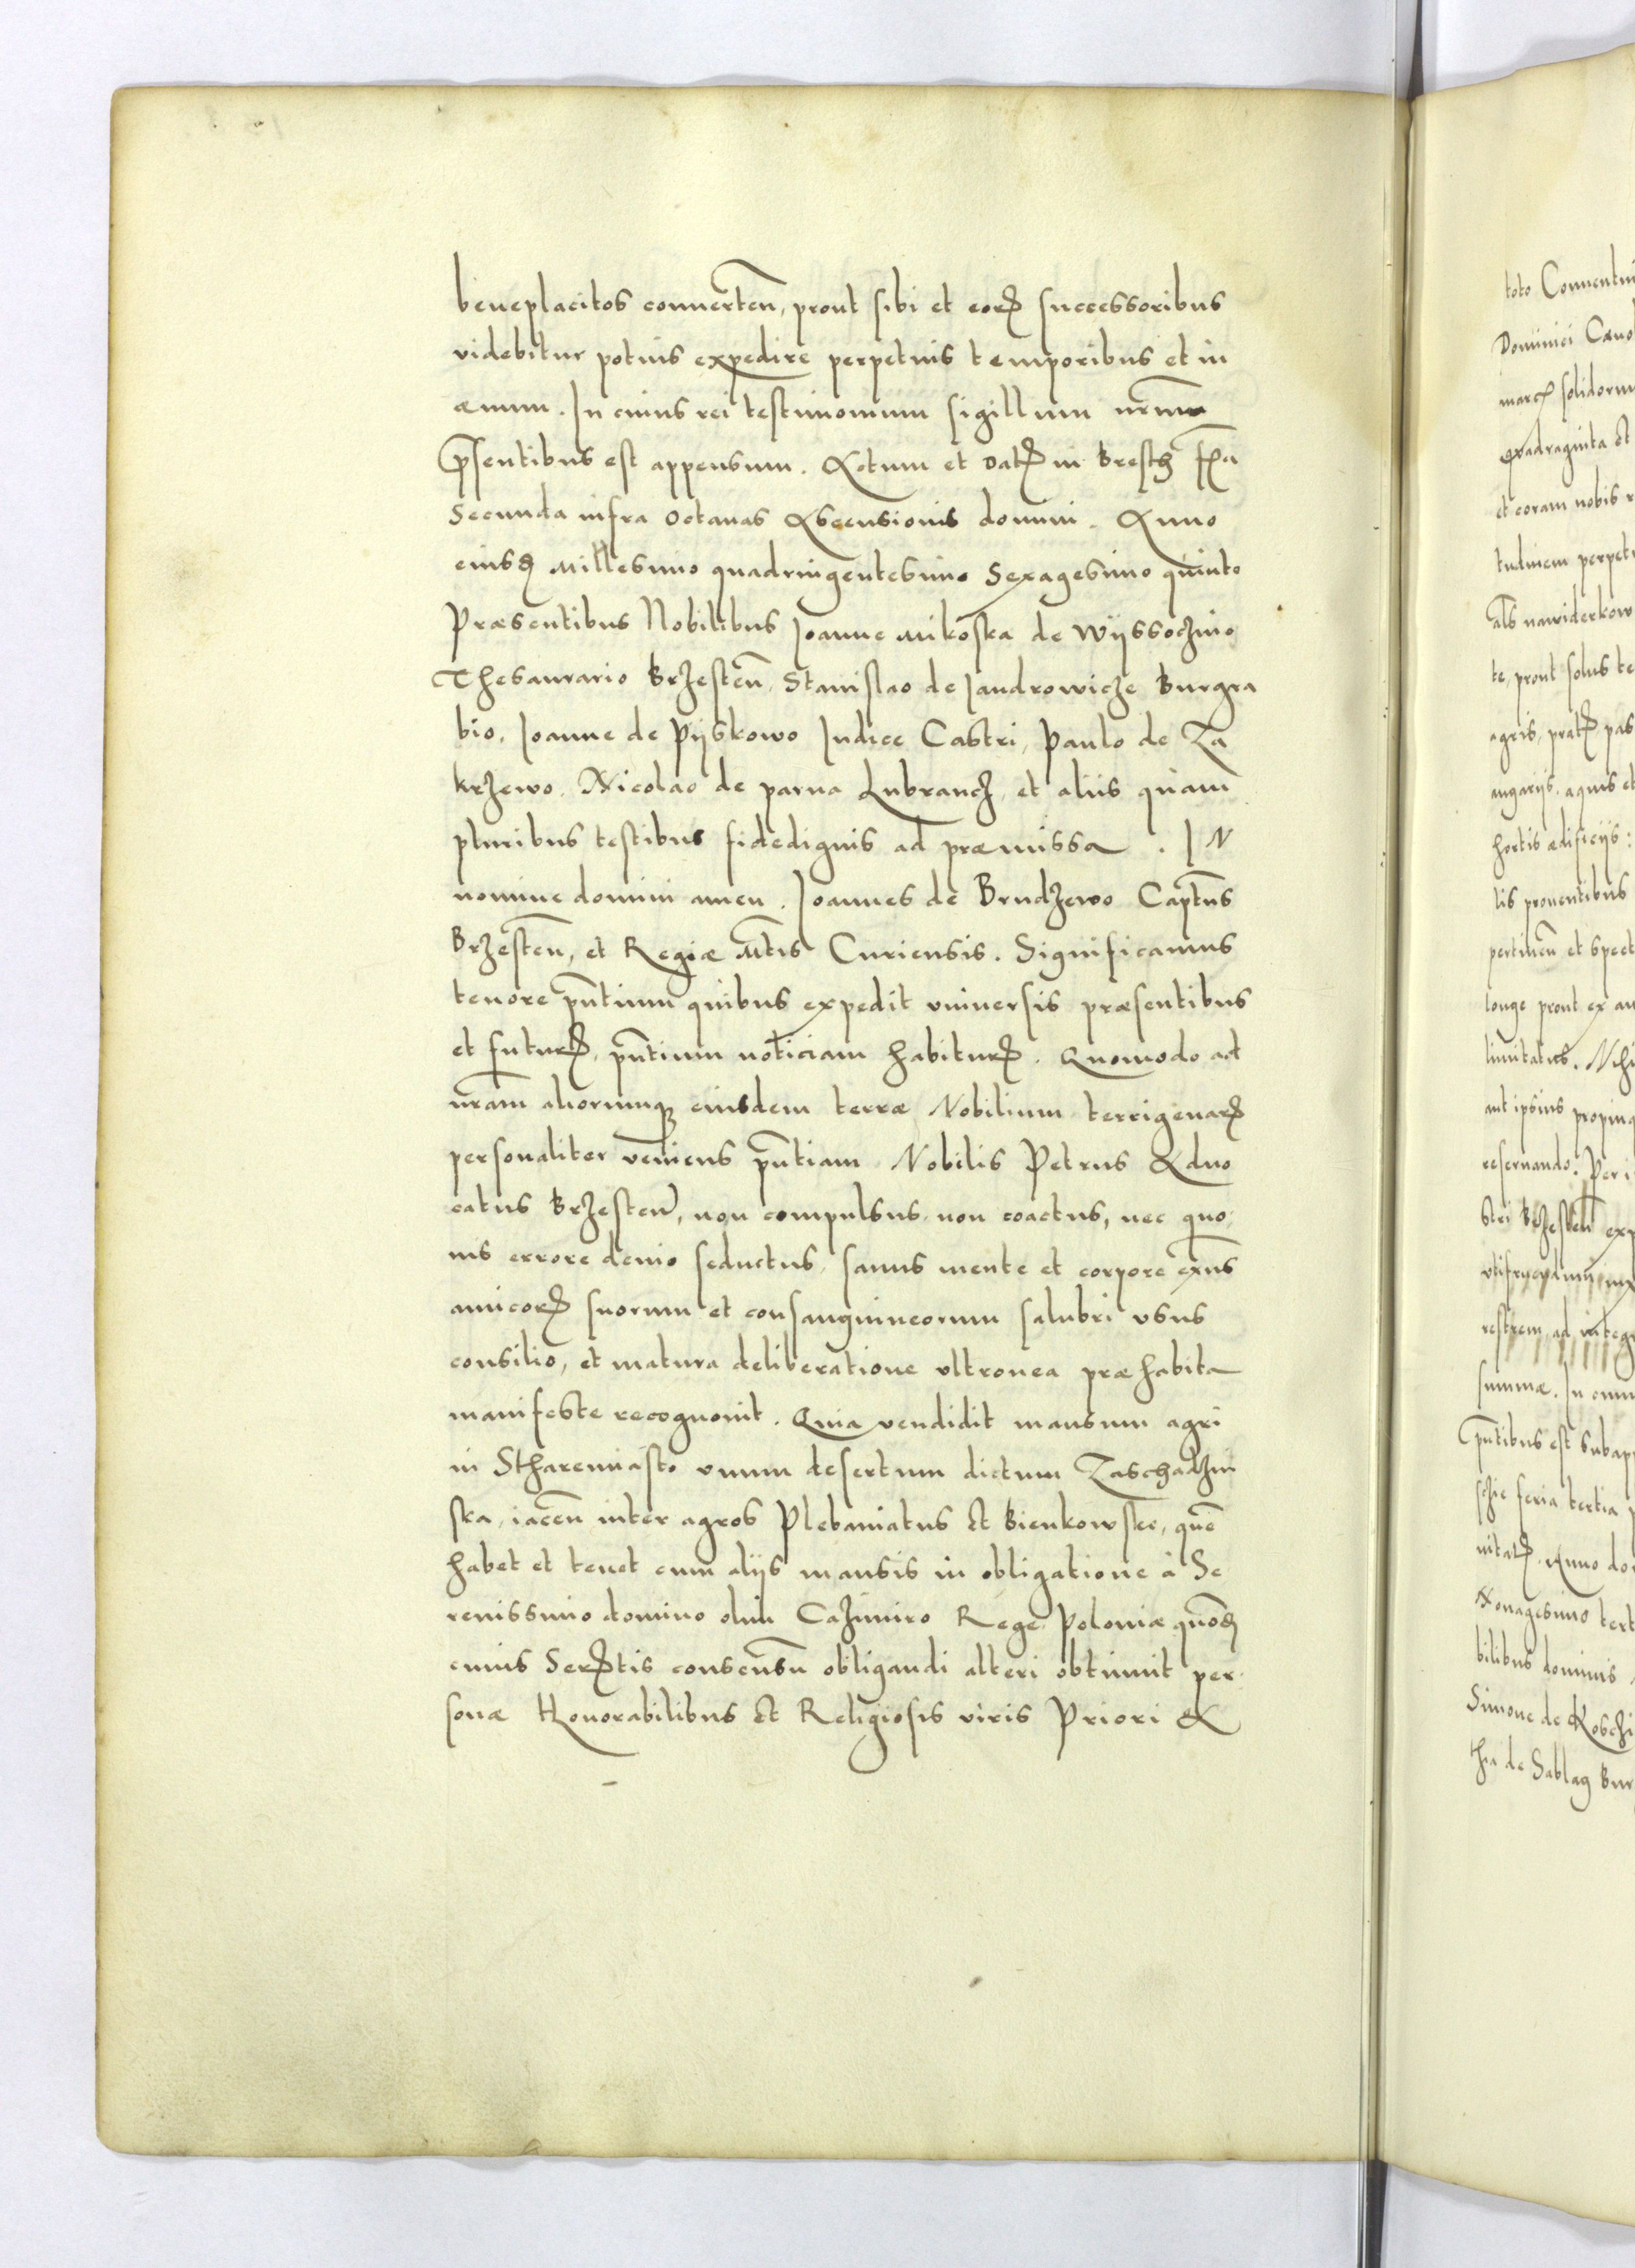 beneplacitos conuerteñ, prout sibi et eorꝝ successoribus
videbitur potius expedire perpetuis temporibus et in
æuum. In cuius rei testimonium sigillum nr̃um
p̃sentibus est appensum. Actum et Datꝝ in Bresth fꝝia
Secunda infra octauas Ascensionis domini. Anno
eiusꝺ Millesimo quadringentesimo Sexagesimo quinto
Præsentibus Nobilibus Joanne Mikoska de Wyssoczino
Thesaurario Brzesteñ, Stanislao de Jandrowicze Burgra
bio, Joanne de Pyskowo Judice Castri, Paulo de Za
krzewo. Nicolao de parua Lubrancz, et aliis quam
pluribus testibus fidedignis ad præmissa. IN
nomine domini amen. Joannes de Brudzewo Capt̃us
Brzesteñ, et Regiæ Mt̃is Curiensis. Significamus
tenore pñtium quibus expedit vniuersis præsentibus
et futurꝝ, pñtium noticiam habiturꝝ. Quomodo ad
nr̃am aliorumqꝫ eiusdem terræ Nobilium terrigenarꝝ
personaliter veniens pñtiam Nobilis Petrus Aduo
catus Brzesteñ, non compulsus non coactus, nec quo
uis errore deuio seductus, sanus mente et corpore exñs
amicorꝝ suorum et consanguineorum salubri vsus
consilio, et matura deliberatione vltronea præhabita
manifeste recognouit. Quia vendidit mansum agri
in Stharemiasto vnum desertum dictum Zaschadzin
ska, iaceñ inter agros Plebaniatus et Bienkowskie, quẽ
habet et tenet cum aliis mansis in obligatione à Se
renissimo domino olim Cazimiro Rege Poloniæ quoñꝺ
cuius Serꝝtis consensũ obligandi alteri obtinuit per
sonæ Honorabilibus et Religiosis viris Priori &
toto Conuentui
Dominici
marcꝝ solidorum
quadraginta et
et coram nobis
tudinem perpet
als nawiderkow
te, prout solus te
agris, pratꝝ pas
angariis, aquis et
hortis ædificiis:
lis prouentibus
pertineñ et spect
longe prout ex an
limitatus. Nihi
aut ipsius propinq
reseruando. Per i
stri Brzesteñ exp
summæ. In cuiu
pñtibus est subap
schie feria tertia p
nitatꝝ Anno do
Nonagesimo tert
bilibus dominis
Simone de Koschi
tha de Sablag Bur